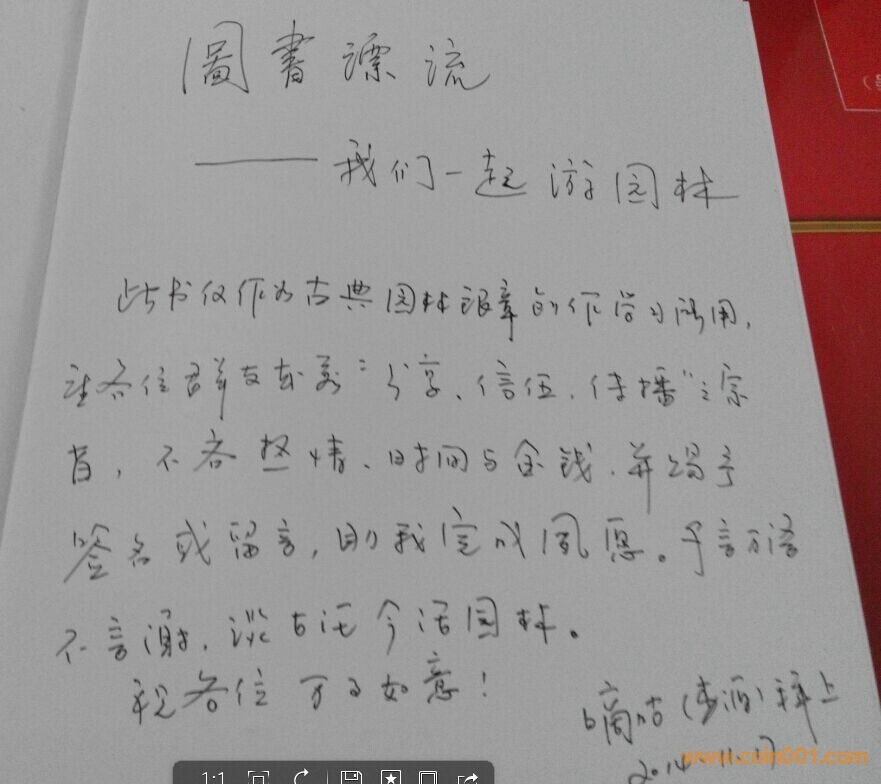 圖書漂流
——我们一起游园林
此书仅作为古典园林银章创作学习所用,
请各位群友本着“分享、信任、传播”之宗
旨,不吝热情、时间与金钱.并赐予
签名或留言,助我完成夙愿。千言万语
不言谢,谈古论今话园林。
祝各位万事如意!
嘀咕(李酒)拜上
www.coin001.com
1:1